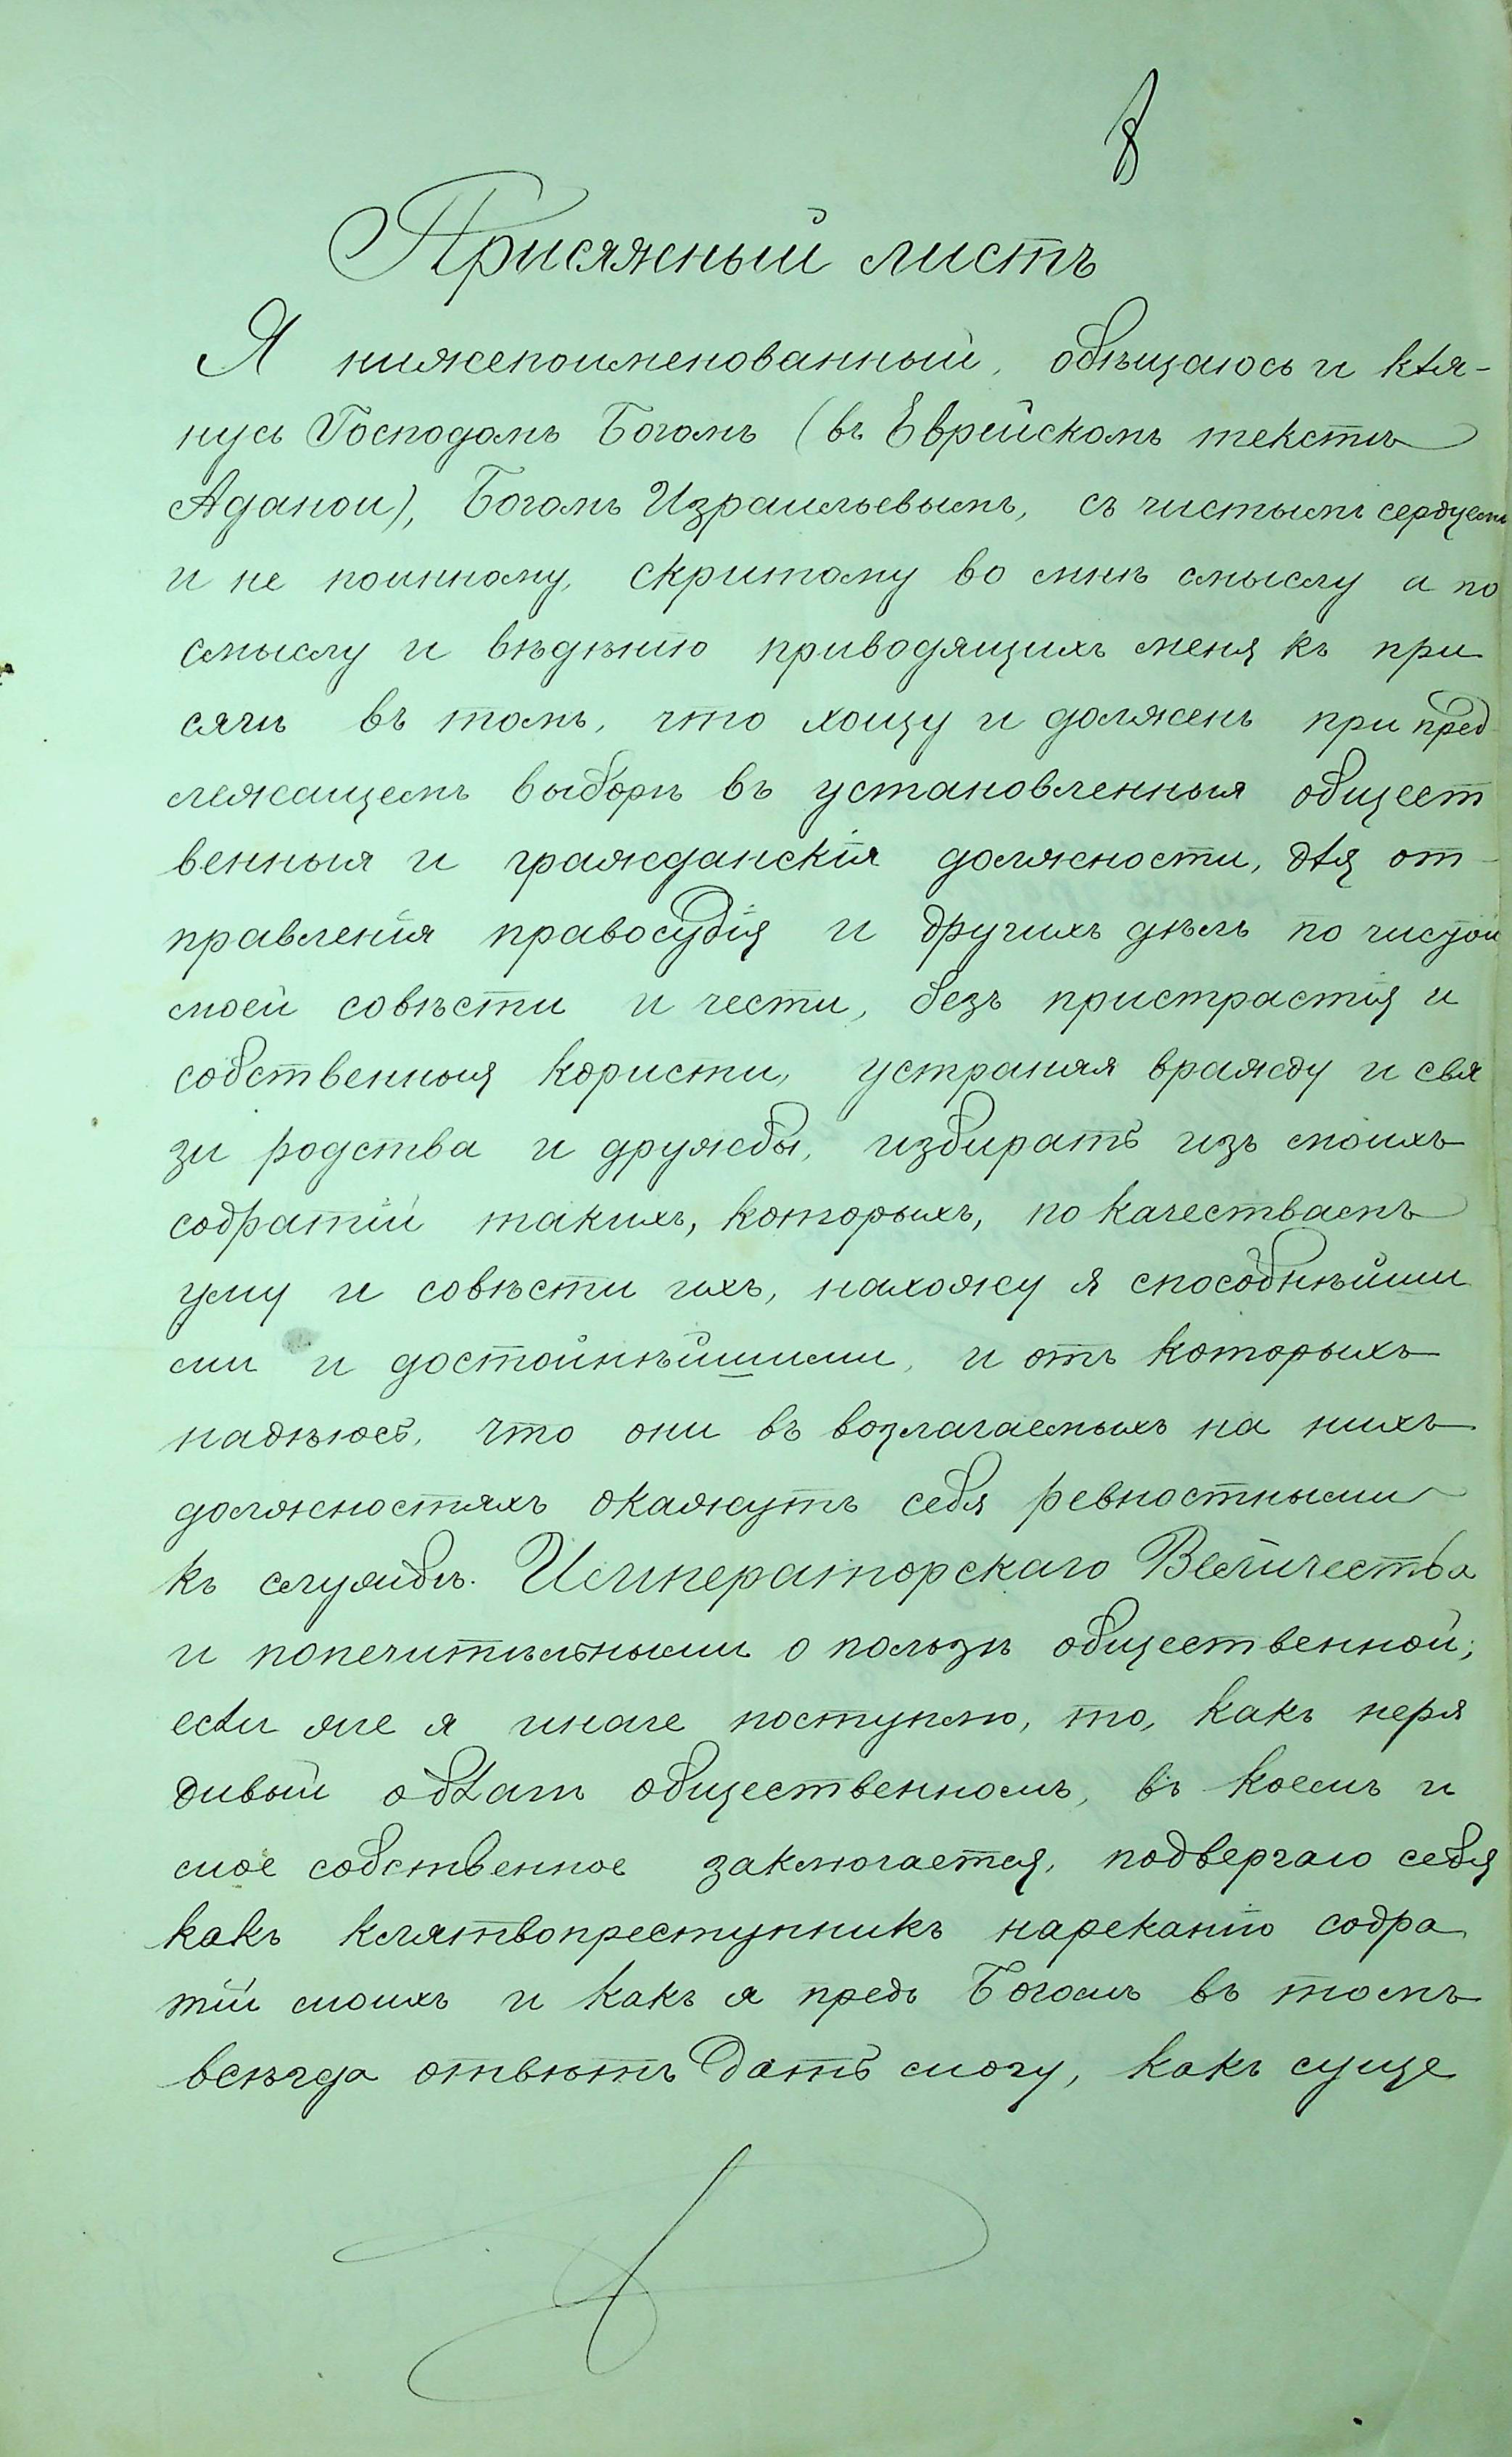 8
Присяжный листъ
Я нижепоименованный, обѣщаюсь и кля-
нусь Господомъ Богомъ (въ Еврейскомъ текстѣ
Аданои), Богомъ Израильевымъ, съ чистымъ сердцемъ
и не поинному, скритому во мнѣ смыслу а по
смыслу и вѣдѣнію приводящихъ меня къ при
сягѣ въ томъ, что хощу и долженъ при пред
лежащемъ выборѣ въ установленныя общест
венныя и гражданскія должности, для от-
правленія правосудія и другихъ дѣлъ по чистой
моей совѣсти и чести, безъ пристрастія и
собственныя користи, устраняя вражду и свя
зи родства и дружбы, избирать изъ моихъ
собратій такихъ, которыхъ, по качествамъ
уму и совѣсти ихъ, нахожу я способнѣйши
ми и достойнѣйшими, и отъ которыхъ
надѣюсь, что они въ возлагаемыхъ на нихъ
должностяхъ окажутъ себя ревностными
къ службѣ. Императорскаго Величества
и попечительными о пользѣ общественной;
если же я иначе поступлю, то, какъ неря
дивый о благѣ общественномъ, въ коемъ и
мое собственное заключается, подвергаю себя
какъ клятвопреступникъ нареканію собра
тій моихъ и какъ я предъ Богомъ въ томъ
всѣгда отвѣтъ дать могу, какъ суще